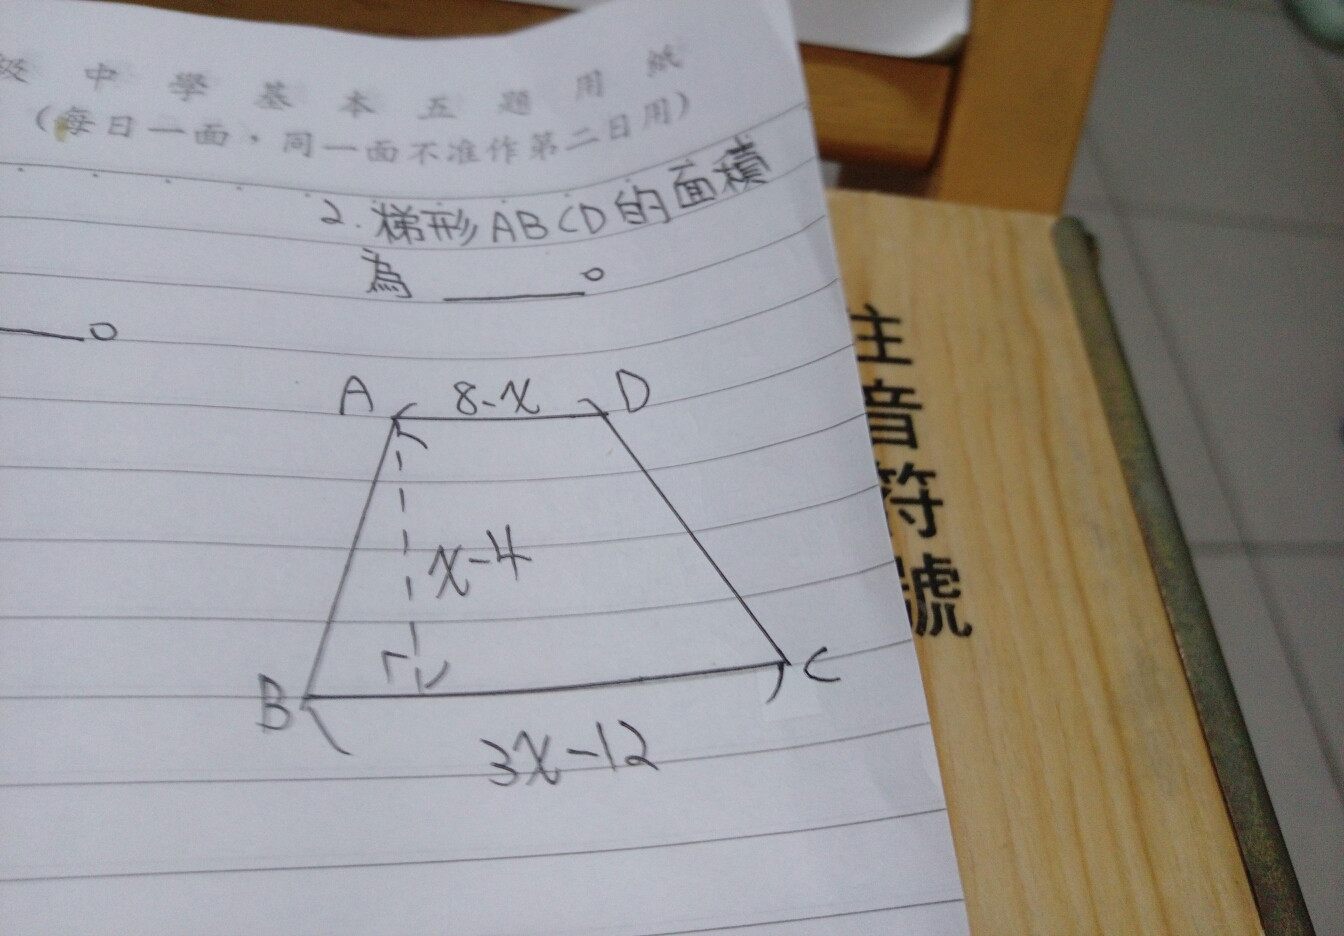 級中學基本五題用紙
（每日一面，同一面不准作第二日用）
2. 梯形ABCD的面積
為 ______。
____。
A 8-x D
x-4
B C
3x-12
注音符號